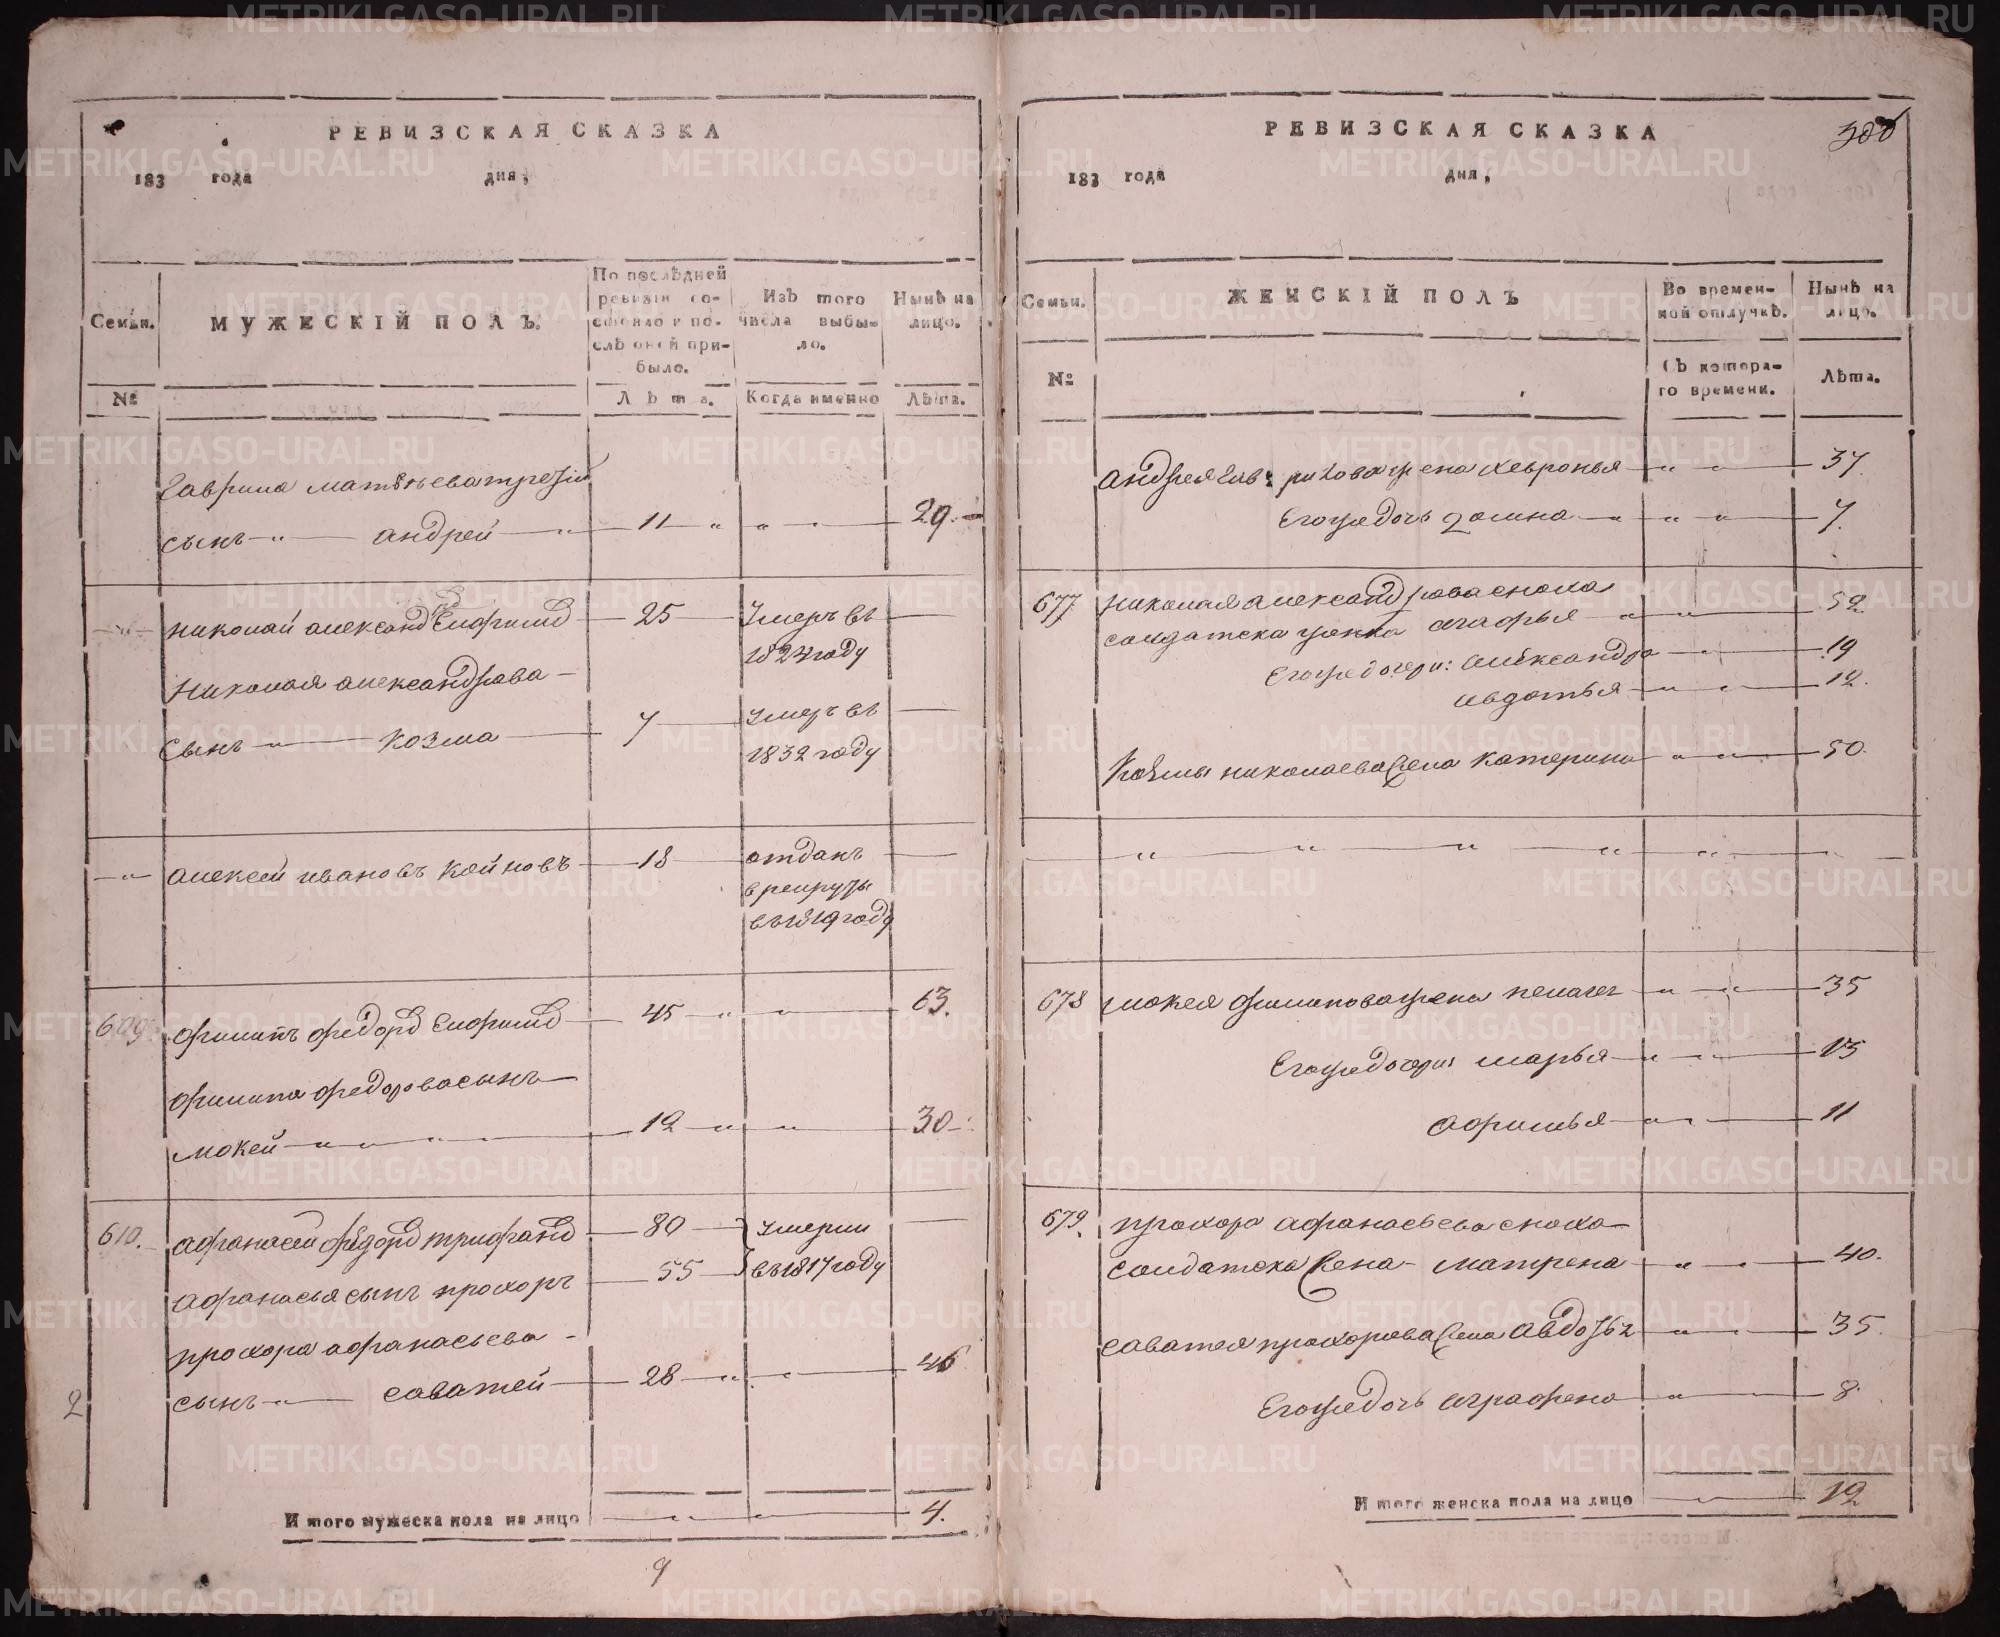 РЕВИЗСКАЯ СКАЗКА
183 года дня,
Семьи.
МУЖЕСКІЙ ПОЛЪ.
По послѣдней ревизіи состояло и послѣ оной прибыло.
Изъ того числа выбыло.
Нынѣ на лицо.
№
Лѣта.
Когда именно
Лѣта.
Гаврила Матвѣева третій
сынъ — " — андрей — " — 11 — " " - — 29. —
— " — николай александ — 25 — умеръ въ —
1824 году
Николая александрова —
сынъ — " — козма — 7 — умеръ въ —
1832 году
— " — алексей ивановъ — 18 — отданъ —
в рекруты
въ 1819 году
609. филипъ федоров — 45 — " — " — 63.
филипа федорова сынъ —
мокей — " — " — " — 12 — " — " — 30 —
610. афанасей трифанов — 80 — умерли —
афанасья сынъ прохоръ — 55 — въ 1817 году
прохора афанасьева —
сынъ — " — саватей — 28 — " — " — 46
2
Итого мужеска пола на лицо — " — 4.
9
РЕВИЗСКАЯ СКАЗКА
183 года дня,
Семьи.
ЖЕНСКІЙ ПОЛЪ
Во временной отлучкѣ.
Нынѣ на лицо.
№
Съ котораго времени.
Лѣта.
андрея гав: рилова жена хевронья — " — " — 37.
Егожедочь домна — " — " — " — 7.
677 николая александрова сноха
солдатска женка агафья — " — " — 52.
Егожедочери: александра — " — 19
авдотья — " — " — 12.
Козмы николаева жена катерина — " — " — 50.
" " " " " "
678 мокея филипова жена пелагея — " — " — 35
Егожедочери: марья — " — " — 15
афимья — " — " — 11
679. прохора афанасьева сноха
солдатска жена — матрена — " — " — 40.
саватея прохорова жена авдотья — " — " — 35.
Егожедочь аграфена — " — 8.
Итого женска пола на лицо — " — 12
METRIKI.GASO-URAL.RU